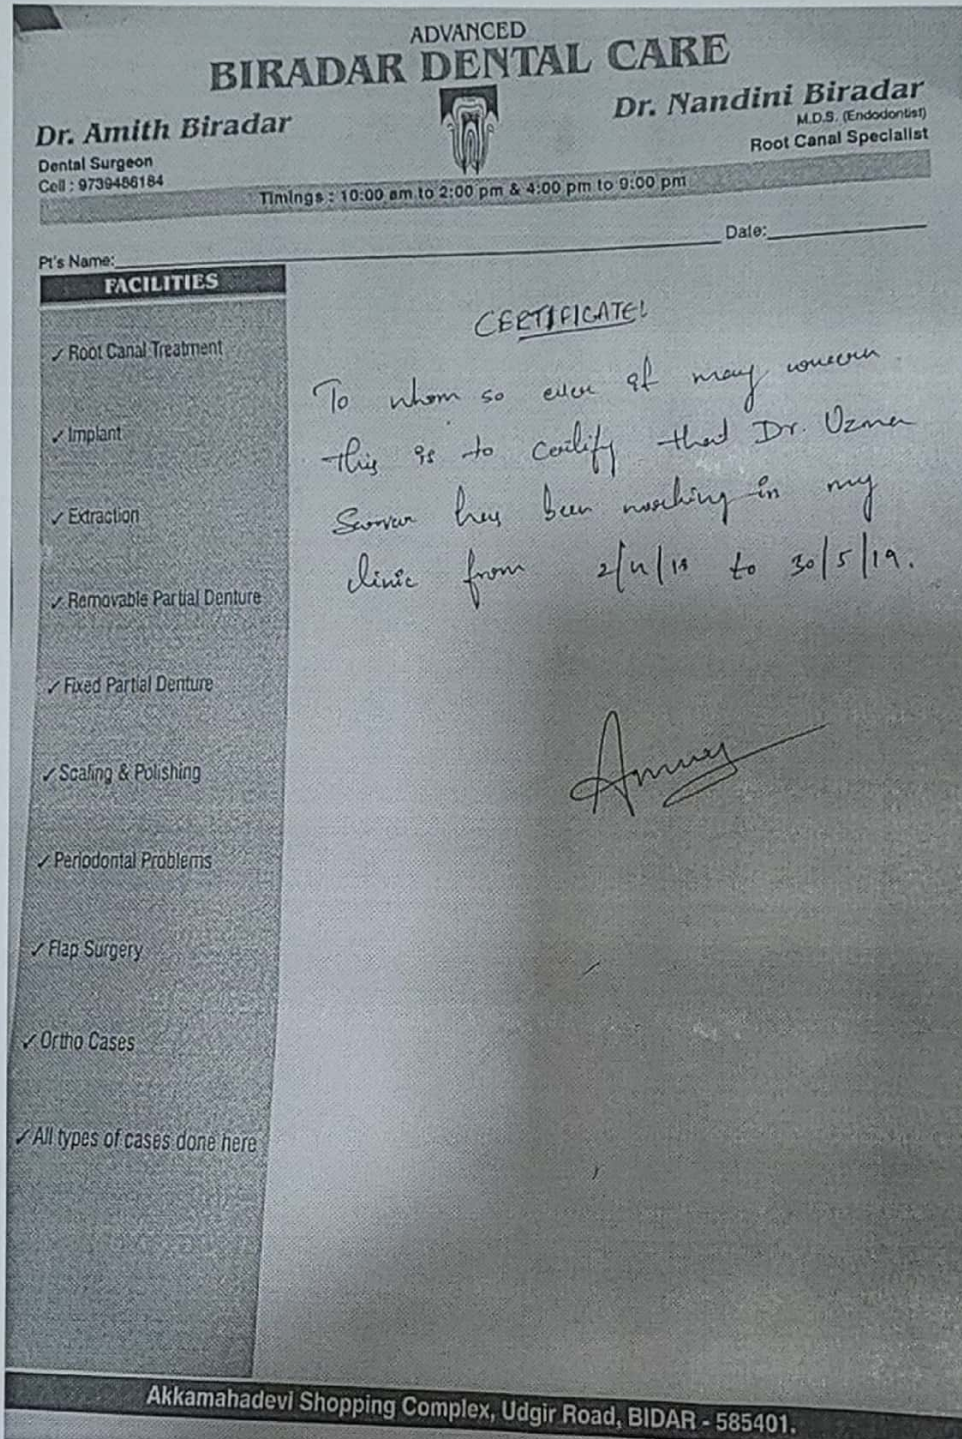 ADVANCED
BIRADAR DENTAL CARE
Dr. Amith Biradar
Dental Surgeon
Cell : 9739486184
Dr. Nandini Biradar
M.D.S. (Endodontist)
Root Canal Specialist
Timings : 10:00 am to 2:00 pm & 4:00 pm to 9:00 pm
Pt's Name:
Date:
FACILITIES
✓ Root Canal Treatment
✓ Implant
✓ Extraction
✓ Removable Partial Denture
✓ Fixed Partial Denture
✓ Scaling & Polishing
✓ Periodontal Problems
✓ Flap Surgery
✓ Ortho Cases
✓ All types of cases done here
CERTIFICATE!
To whom so ever it may concern
this is to certify that Dr. Uzma
has been working in my
clinic from to 30/5/19.
Akkamahadevi Shopping Complex, Udgir Road, BIDAR - 585401.